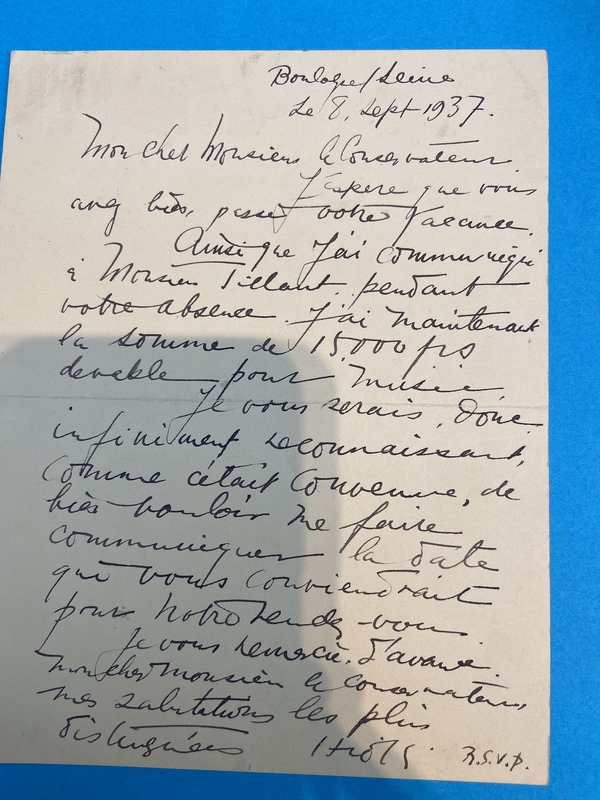 Boulogne/Seine
Le 8, Sept 1937.
Mon cher Monsieur le Conservateur
J'espère que vous
avez bièn, passer votre vacance.
Ainsi que j'ai communiqué
à Monsieur pendant
votre absence. j'ai maintenant
la somme de 15,000 frs
devable pour musée.
Je vous serais, donc
infiniment reconnaissant,
comme c'était convenue, de
bièn vouloir me faire
communiquer la date
qui vous conviendrait
pour notre rendez-vous.
Je vous remercie. d'avance.
mon cher Monsieur le Conservateur,
mes salutations les plus
distinguées R.S.V.P.